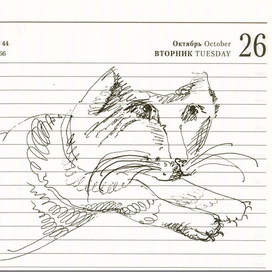 44
Октябрь October
26
66
ВТОРНИК TUESDAY